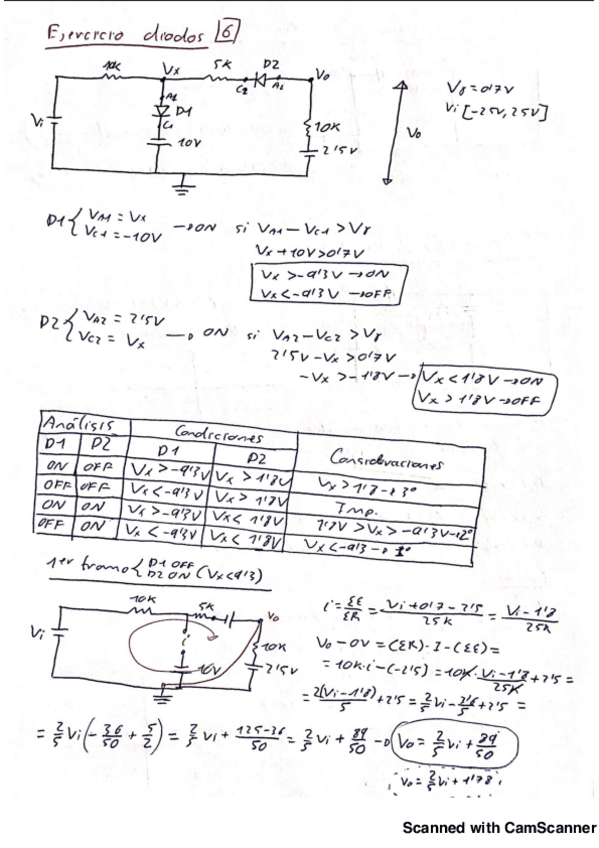 Ejercicio diodos 6
10K Vx 5K D2 Vo
C2 A2
Vγ = 0'7V
Vi [-25V, 25V]
A1
Vi D1 10K Vo
C1
10V 2'5V
D1 { VA1 = Vx
VC1 = -10V → ON si VA1 - VC1 > Vγ
Vx + 10V > 0'7V
Vx > -9'3V → ON
Vx < -9'3V → OFF
D2 { VA2 = 2'5V
VC2 = Vx → ON si VA2 - VC2 > Vγ
2'5V - Vx > 0'7V
-Vx > -1'8V → Vx < 1'8V → ON
Vx > 1'8V → OFF
Análisis Condiciones Consideraciones
D1 D2 D1 D2
ON OFF Vx > -9'3V Vx > 1'8V Vx > 1'8 → 3º
OFF OFF Vx < -9'3V Vx > 1'8V Imp.
ON ON Vx > -9'3V Vx < 1'8V 1'8V > Vx > -9'3V → 2º
OFF ON Vx < -9'3V Vx < 1'8V Vx < -9'3 → 1º
1er tramo { D1 OFF
D2 ON (Vx < 9'3)
10K 5K Vo
Vi i 10K
10V 2'5V
i = ΣE/ΣR = Vi + 0'7 - 2'5/25K = Vi - 1'8/25K
Vo - 0V = (ΣR) · I - (ΣE) =
= 10K · i - (-2'5) = 10K · Vi - 1'8/25K + 2'5 =
= 2(Vi - 1'8)/5 + 2'5 = 2/5 Vi - 3'6/5 + 2'5 =
= 2/5 Vi (- 36/50 + 5/2) = 2/5 Vi + 125 - 36/50 = 2/5 Vi + 89/50 → Vo = 2/5 Vi + 89/50
Vo = 2/5 Vi + 1'78
Scanned with CamScanner